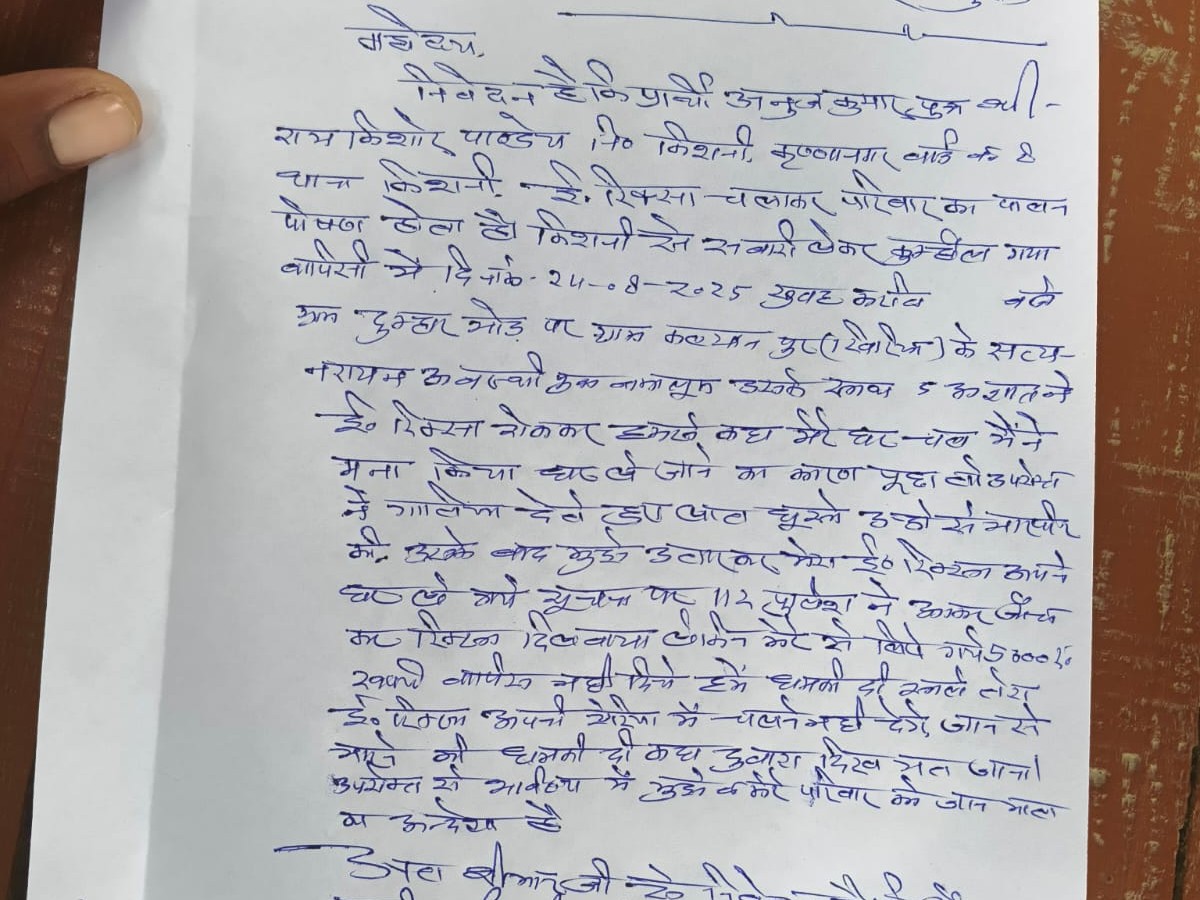 महोदय,
निवेदन है कि प्रार्थी अनुज कुमार, पुत्र श्री -
राम किशोर पाण्डेय नि० किशनी, कृष्णानगर वार्ड क 8
थाना किशनी, ई. रिक्सा चलाकर परिवार का पालन
पोषण होता है। किशनी से सवारी लेकर गया
वापिसी मे दिनांक- 24-08-2025 सुवह करीव बजे
मोड़ पर ग्राम कल्यान पुर के सत्य-
नरायन अवस्थी साथ 5 अज्ञात ने
ई० रिक्सा रोककर हमसे कहा मेरे घर चल मैंने
मना किया घर ले जाने का कारण पूछा तो उपरोक्त
ने गालिया देते हुए लात घूसो डन्डो से मारपीट
की. उसके बाद मुझे उतार कर मेरा ई० रिक्सा अपने
घर ले गये सूचना पर 112 पुलिश ने आकर जाँच
कर रिक्सा दिलवाया लेकिन मेरे से लिये गये 5000 रु०
वापिस नही दिये हमें धमकी दी साले तेरा
ई० रिक्सा अपनी ऐरिया में चलने नही देंगे, जान से
मारने की धमकी दी कहा दुवारा दिख मत जाना।
उपरोक्त से भविष्य में मुझे व मेरे परिवार को जान माल
का अन्देशा है
अतः श्रीमान् जी से